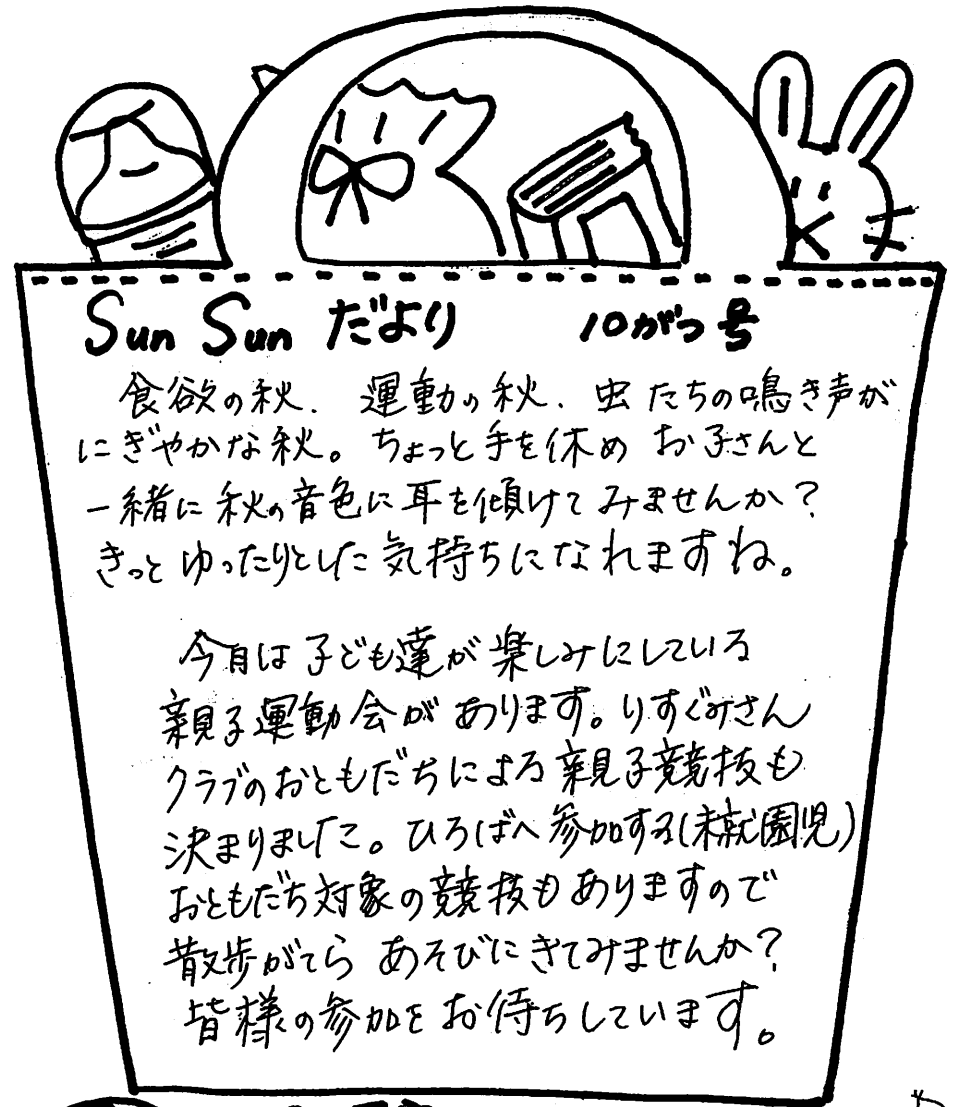 Sun Sun だより 10がつ号
食欲の秋、運動の秋、虫たちの鳴き声が
にぎやかな秋。ちょっと手を休め お子さんと
一緒に秋の音色に耳を傾けてみませんか？
きっとゆったりとした気持ちになれますね。
今月は子ども達が楽しみにしている
親子運動会があります。りすぐみさん
クラブのおともだちによる親子競技も
決まりました。ひろばへ参加する(未就園児)
おともだち対象の競技もありますので
散歩がてら あそびにきてみませんか？
皆様の参加をお待ちしています。